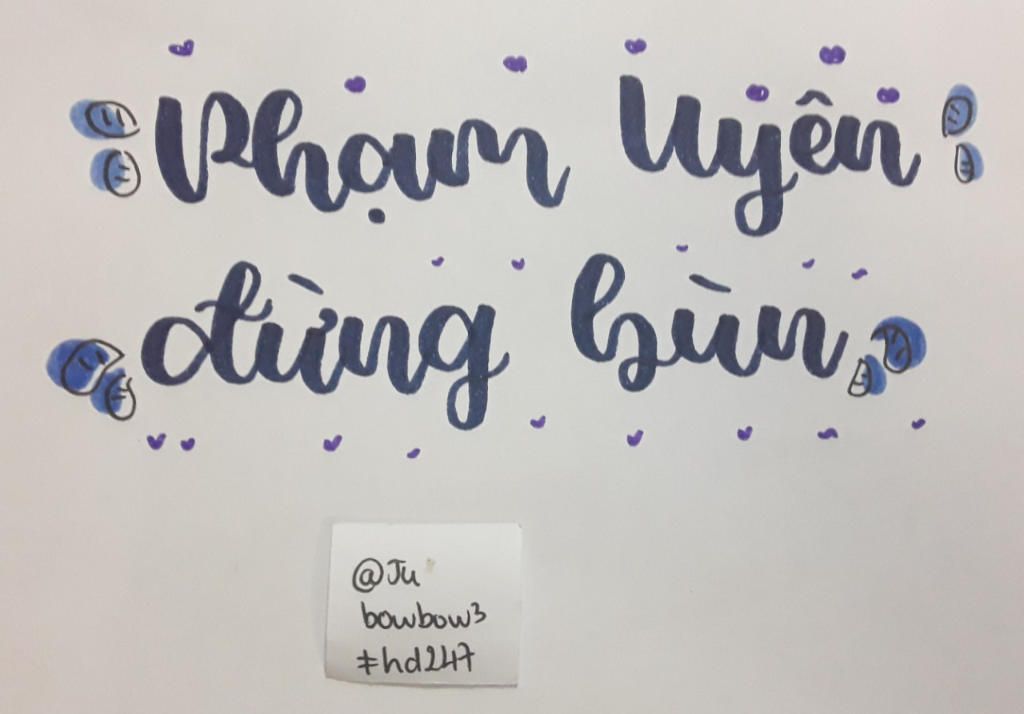 Phạm Uyên
đừng bùn
@Ju
bowbow3
#hd247